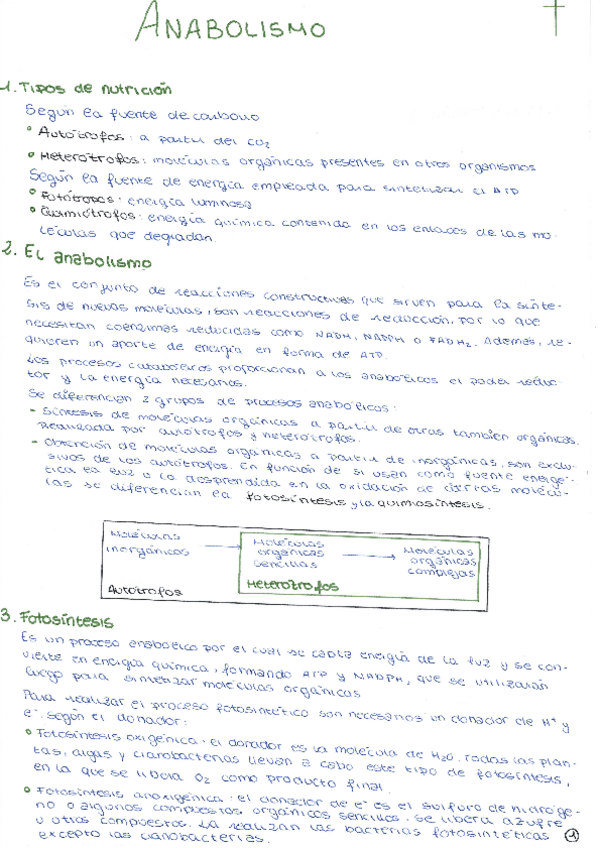 ANABOLISMO
1. Tipos de nutrición
Según la fuente de carbono
• Autótrofos: a partir del CO₂
• Heterótrofos: moléculas orgánicas presentes en otros organismos
Según la fuente de energía empleada para sintetizar el ATP
• Fotótrofos: energía luminosa
• Quimiótrofos: energía química contenida en los enlaces de las mo-
léculas que degradan.
2. El anabolismo
Es el conjunto de reacciones constructivas que sirven para la sínte-
sis de nuevas moléculas, son reacciones de reducción, por lo que
necesitan coenzimas reducidas como NADH, NADPH o FADH₂. Además, re-
quieren un aporte de energía en forma de ATP.
Los procesos catabólicos proporcionan a los anabólicos el poder reduc-
tor y la energía necesarios.
Se diferencian 2 grupos de procesos anabólicos:
- Síntesis de moléculas orgánicas a partir de otras también orgánicas.
Realizada por autótrofos y heterótrofos.
- Obtención de moléculas orgánicas a partir de inorgánicas, son exclu-
sivos de los autótrofos. En función de si usan como fuente energé-
tica la luz o la desprendida en la oxidación de ciertas molécu-
las se diferencian la fotosíntesis y la quimiosíntesis.
Moléculas inorgánicas → Moléculas orgánicas sencillas → Moléculas orgánicas complejas
Autótrofos Heterótrofos
3. Fotosíntesis
Es un proceso anabólico por el cual se capta energía de la luz y se con-
vierte en energía química, formando ATP y NADPH, que se utilizarán
luego para sintetizar moléculas orgánicas
Para realizar el proceso fotosintético son necesarios un donador de H⁺ y
e⁻. Según el donador:
• Fotosíntesis oxigénica: el donador es la molécula de H₂O. Todas las plan-
tas, algas y cianobacterias llevan a cabo este tipo de fotosíntesis,
en la que se libera O₂ como producto final.
• Fotosíntesis anoxigénica: el donador de e⁻ es el sulfuro de hidróge-
no o algunos compuestos orgánicos sencillos. Se libera azufre
u otros compuestos. La realizan las bacterias fotosintéticas
excepto las cianobacterias.
1